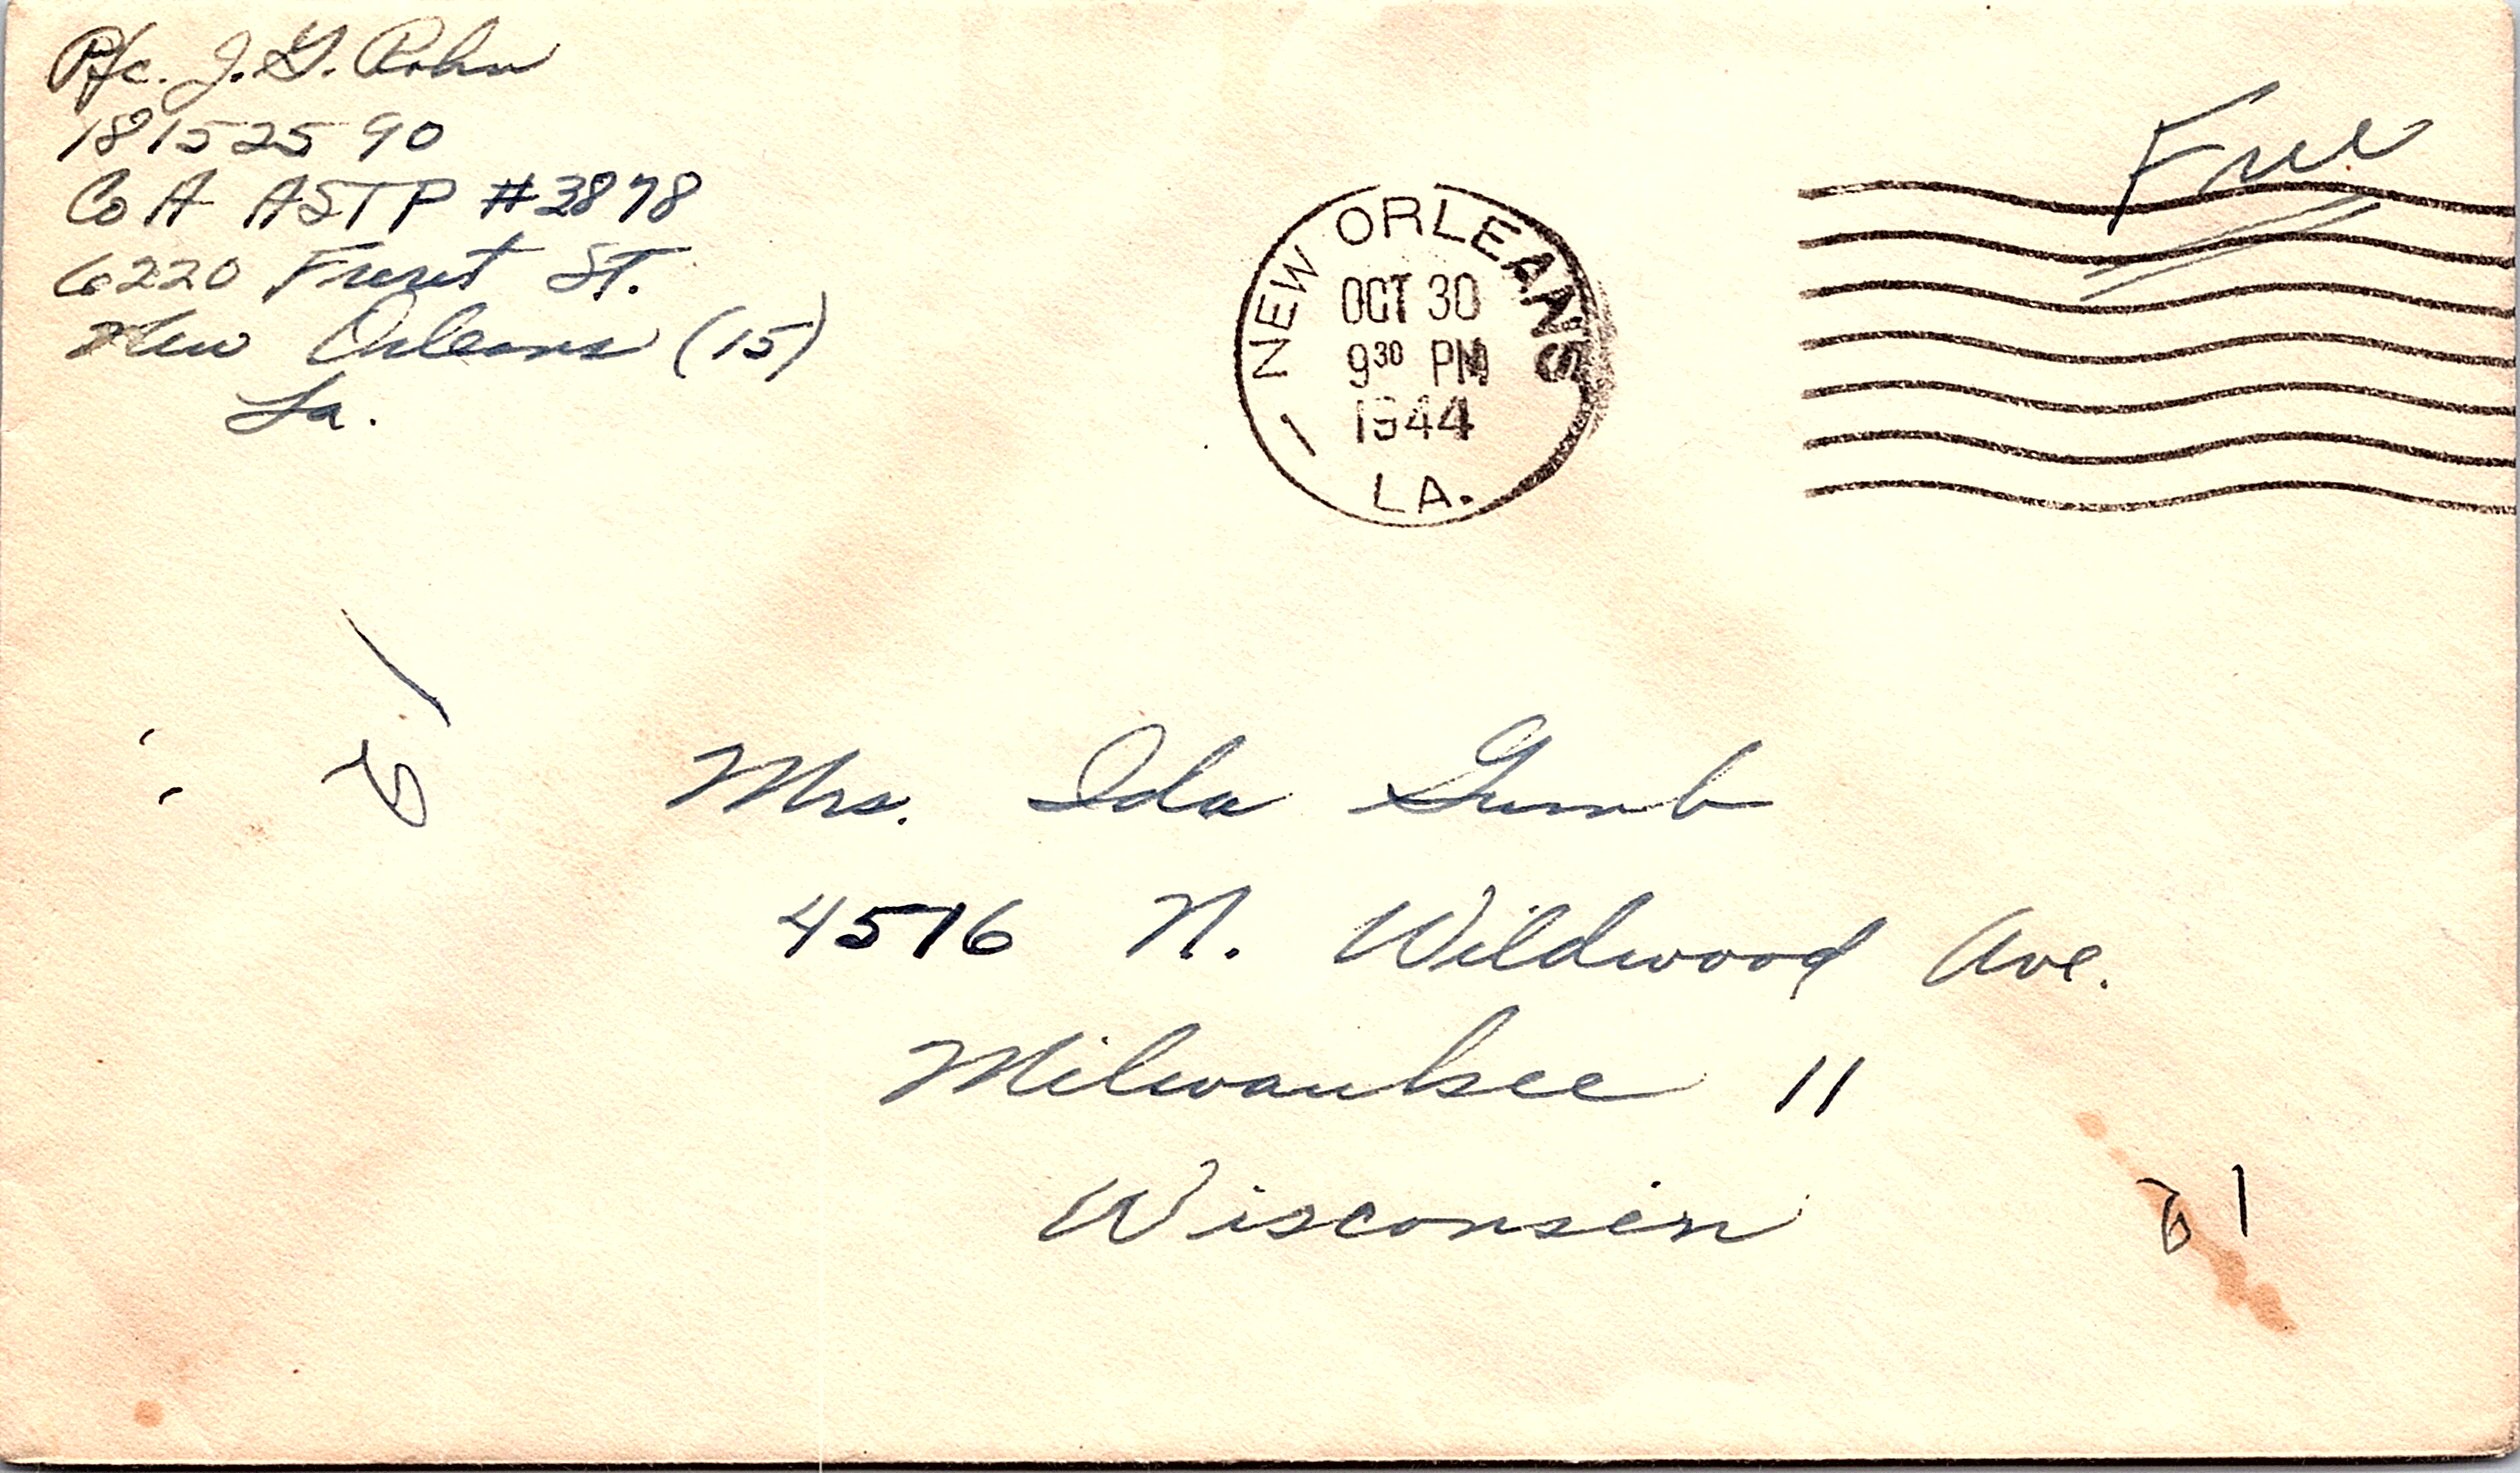 Pfc. J. G. Rohn
18152590
Co A ASTP #3878
6220 Freret St.
New Orleans (15)
La.
Free
NEW ORLEANS 1
OCT 30
9 30 PM
1944
LA.
Mrs. Ida Gumb
4516 N. Wildwood Ave.
Milwaukee 11
Wisconsin